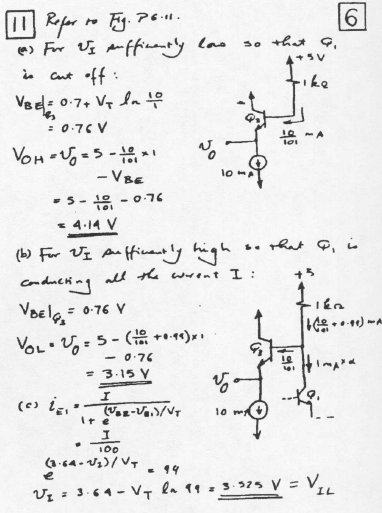 11 Refer to Fig. P6.11. 6
(a) For V_I sufficiently low so that Q_1
is cut off:
V_BE|_Q3 = 0.7 + V_T ln 10/1
= 0.76 V
V_OH = V_O = 5 - 10/101 × 1
- V_BE
= 5 - 10/101 - 0.76
= 4.14 V
+5V
1 kΩ
Q_3
10/101 mA
V_O
10 mA
(b) For V_I sufficiently high so that Q_1 is
conducting all the current I:
V_BE|_Q3 = 0.76 V
V_OL = V_O = 5 - (10/101 + 0.99) × 1
- 0.76
= 3.15 V
+5
1 kΩ
(10/101 + 0.99) mA
Q_3
10/101
1 mA × α
V_O
Q_1
10 mA
(c) i_E1 = I / (1 + e^(V_BB - V_E1)/V_T)
= I/100
e^(3.64 - V_I)/V_T = 99
V_I = 3.64 - V_T ln 99 = 3.525 V = V_IL